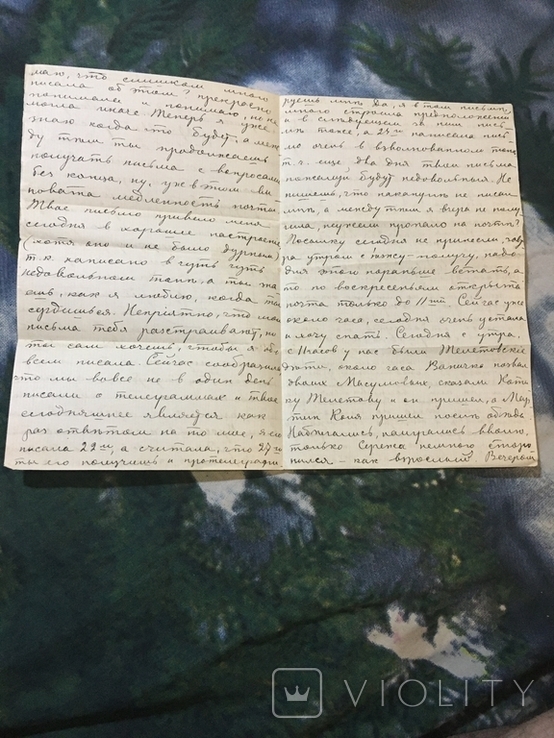 маю, что слишком много
писала об этом? Прекрасно
понимала и понимаю, но не
могла иначе. Теперь я уже
знаю когда что будет, а меж
ду тем ты продолжаешь
получать письма с вопросами
без конца, ну, уже в этом ви
новата медленность почты.
Твое письмо привело меня
сегодня в хорошее настроение
(хотя оно и не было дурным)
т.к. написано в чуть чуть
недовольном тоне, а ты зна
ешь, как я люблю, когда ты
сердишься. Неприятно, что мои
письма тебя расстраивают, но
ты сам хочешь, чтобы я обо
всем писала. Сейчас сообразила
что мы вовсе не в один день
писали о телеграммах и твое
сегодняшнее является как
раз ответом на то мое, я
писала 22го, а считала, что 27го
ты его получишь и протелеграфи
руешь мне. Да, я в том письме
много строила предположений
и в следующем за ним пись
ме тоже, а 24го написала пись
мо очень в взволнованном тоне
т.ч. еще два дня твои письма
пожалуй будут недовольныя. Не
пишешь, что накануне не писал
мне, а между тем я вчера не полу
чила, неужели пропало на почте?
Посылку сегодня не принесли, зав
ра утром с тжсу получу, надо
для этого пораньше встать, а
то по воскресеньям открыта
почта только до 11ти. Сейчас уже
около часа, сегодня очень устала
и хочу спать. Сегодня с утра,
с часов у нас были Шелетовские
дети, около часа Ваничка позвал
двоих Масумовых, сказали Коти
ку Шелетову и он пришел, а
Коля пришел после обеда.
Набегались, наигрались вволю,
только Сережа немного
нился – как взрослый. Вечером
VIOLITY